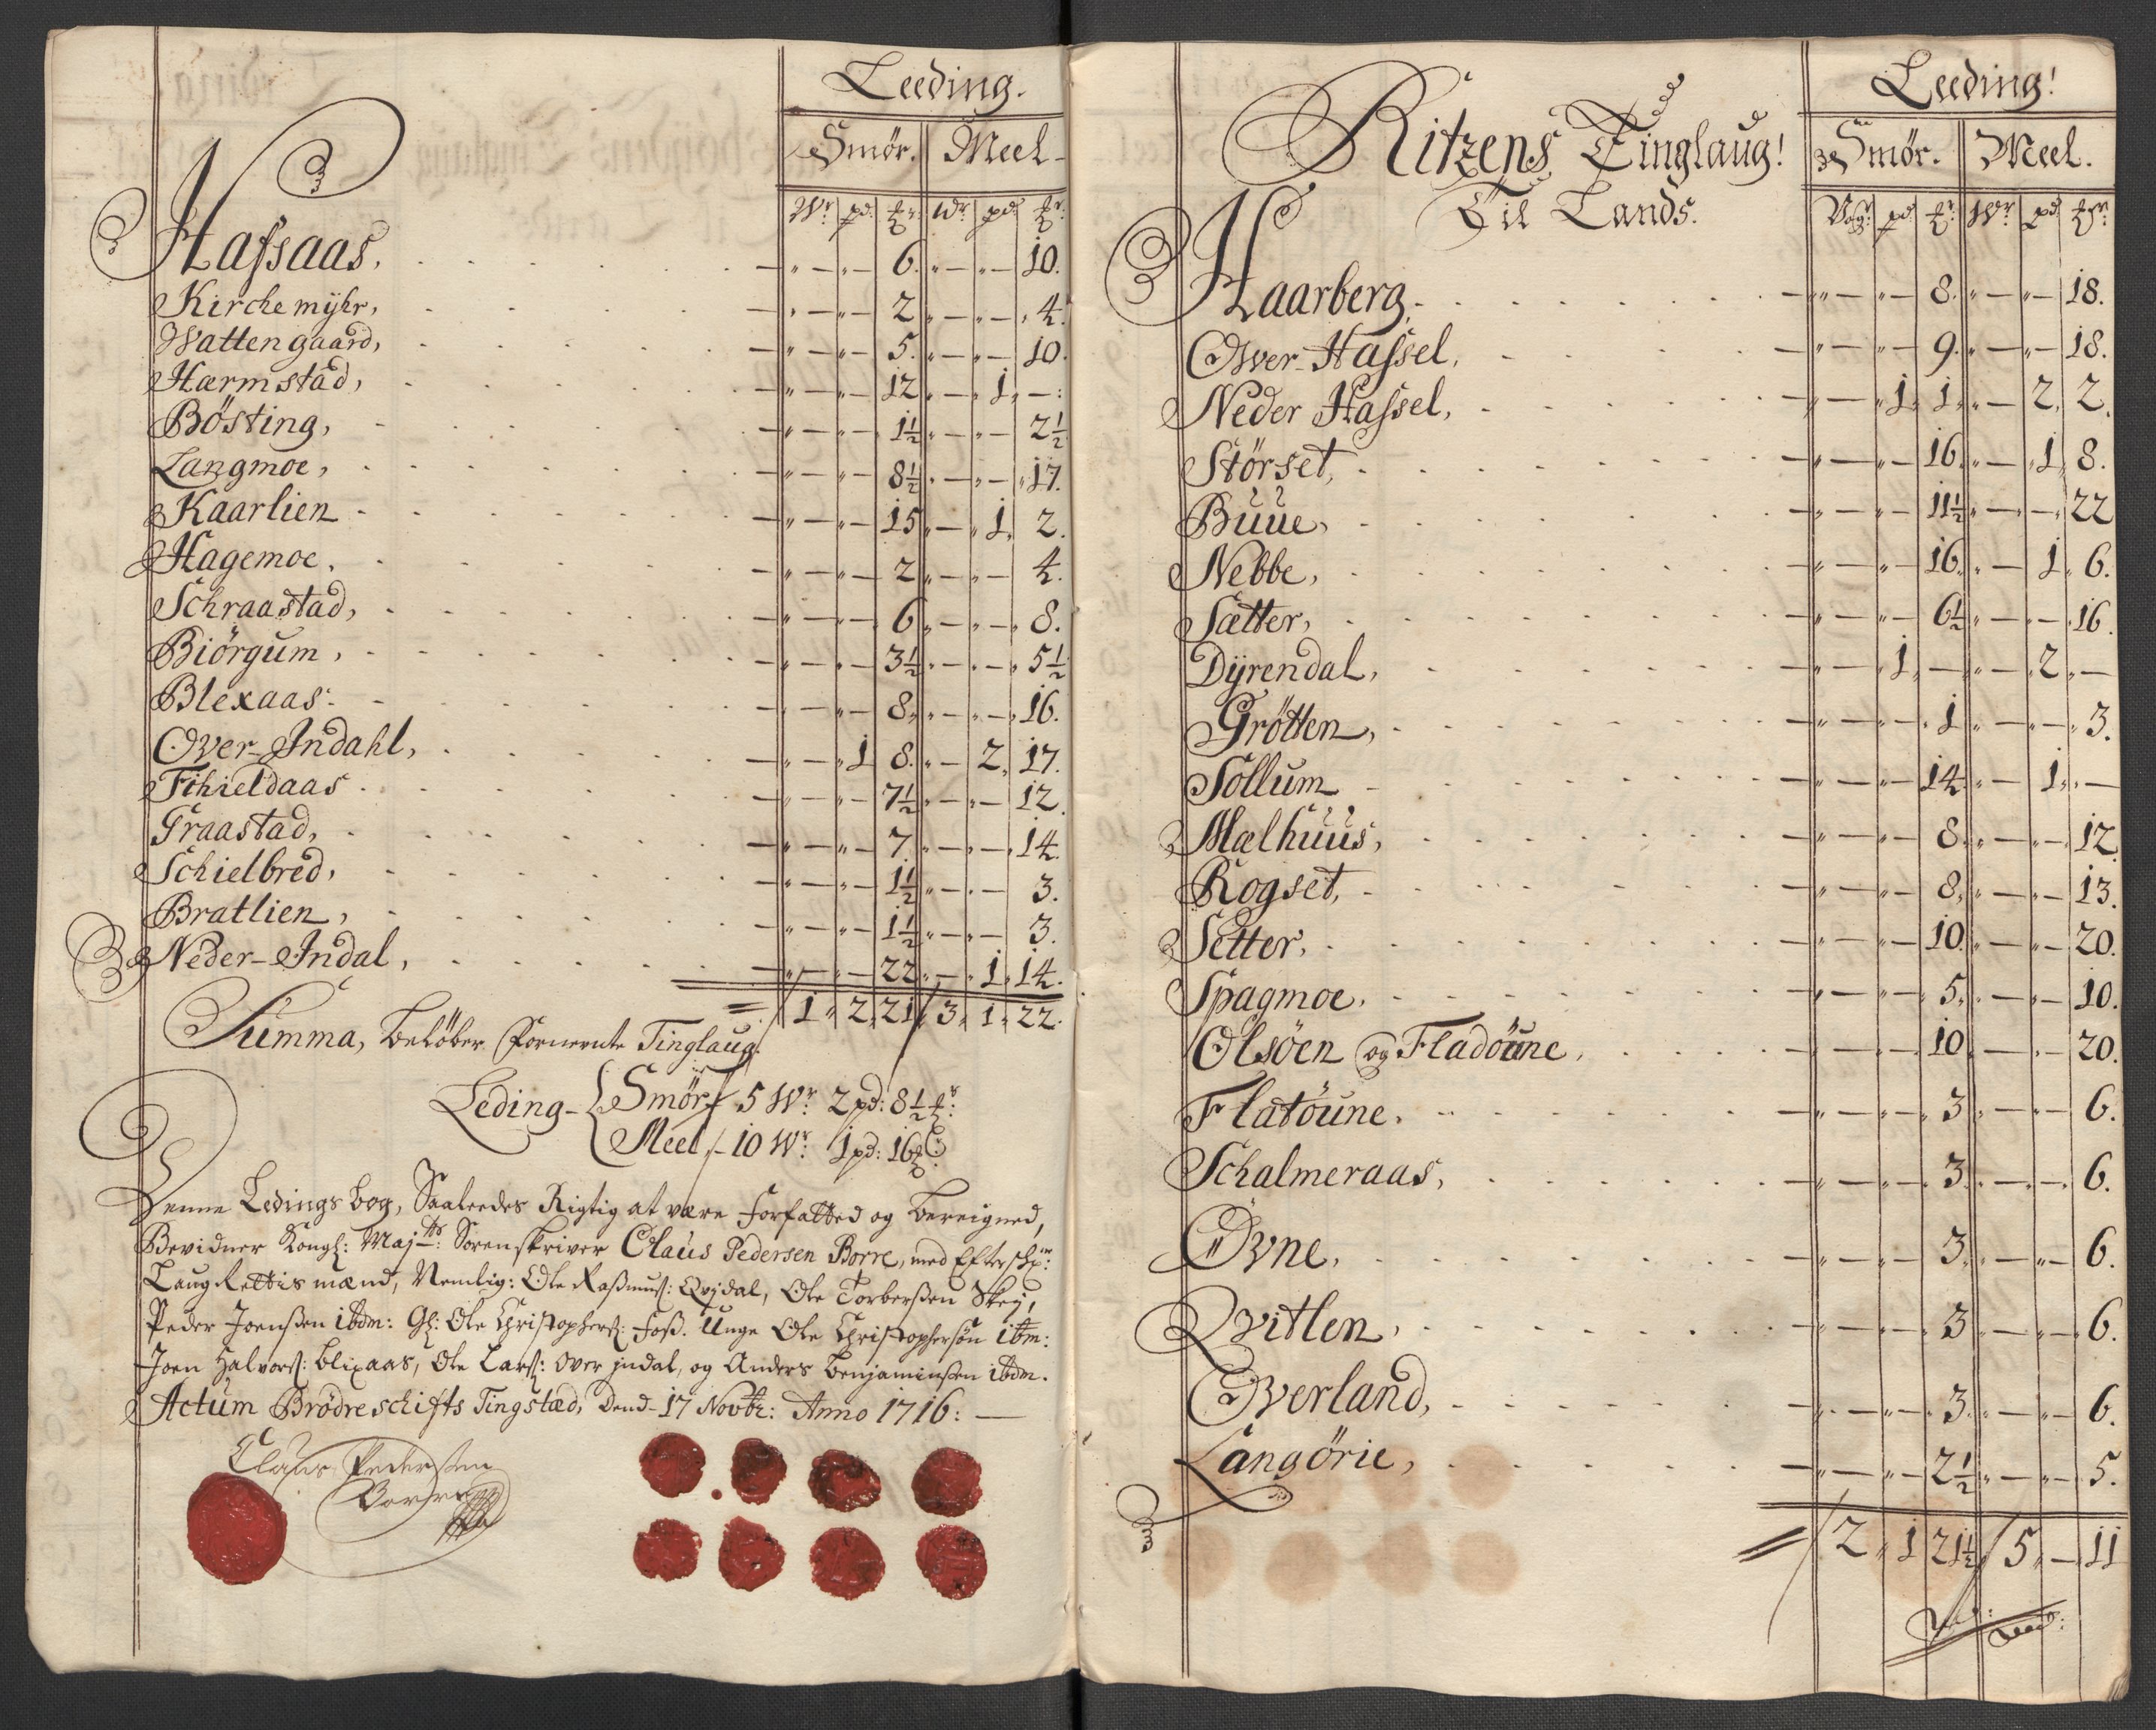 Leeding.
Smör. Meel
Wr pd: ℔r Wr: pd ℔r:
Hafsaas, — — 6. — — 10.
Kirchemyhr, — — 2 — — 4.
Wattengaard, — — 5. — — 10.
Hærmstad, — — 12 — 1, —:
Bösting, — — 1½ — — 2½
Langmoe, — — 8½ — — 17.
Kaarlien — — 15 — 1, 2.
Hagemoe, — — 2 — — 4.
Schraastad, — — 6 — — 8.
Biörgum, — — 3½ — — 5½
Blexaas: — — 8, — — 16.
Over-Indahl, — 1 8. — 2, 17.
Fihieldaas — — 7½ — — 12.
Graastad, — — 7. — — 14.
Schielbred, — — 1½ — — 3.
Bratlien, — — 1½ — — 3.
Neder-Indal, — — 22 — 1, 14.
1, 2, 21 3, 1, 22.
Summa, beløber fornemte Tinglaug.
Leding- Smör 5 Wr: 2 pd: 8½ ℔r:
Meel 10 Wr: 1 pd: 16 ℔:
Denne Ledings bog, Saaleedes Rigtig at være forfatted og bereigned,
Bevidner Kongl: Majts: Sorenskriver Claus Pedersen Borre, med Eftersk:
Laug Rettis mænd, Nemlig: Ole Rasmus: Qvjdal, Ole Torbersen Skej,
Peder Joensen ibdm: Gl: Ole Christophers: Foss. Unge Ole Christophersøn ibm:
Joen Halvors: blixaas, Ole Lars: Over jndal, og Anders benjaminsen ibdm.
Actum Brödreschifts Tingstæd, Dend 17 Novbr: Anno 1716: —
Claus Pedersen
Borre
Leeding!
Ritzens Tinglaug! Smör. Meel.
Til Lands. Vogr pd ℔r Wr pd ℔r:
Haarberg, — — 8. — — 18.
Over-Hassel, — — 9. — — 18.
Neder Hassel, — 1, 1, — 2, 2.
Störset, — — 16. — 1, 8.
Buue, — — 11½ — — 22
Nebbe, — — 16, — 1, 6.
Sætter, — — 6½ — — 16.
Dyrendal, — 1, — — 2, —
Grötten, — — 1 — — 3.
Sollum — — 14. — 1, —
Mælhuus, — — 8. — — 12
Rogset, — — 8, — — 13.
Setter, — — 10. — — 20.
Spagmoe, — — 5, — — 10.
Olsöen og Fladöune, — — 10 — — 20.
Flatöune. — — 3 — — 6.
Schalmeraas, — — 3. — — 6.
Øvne, — — 3. — — 6.
Qvitlen, — — 3 — — 6.
Overland, — — 3. — — 6.
Langörie, — — 2½ — — 5.
2, 1 21½ 5, — 11